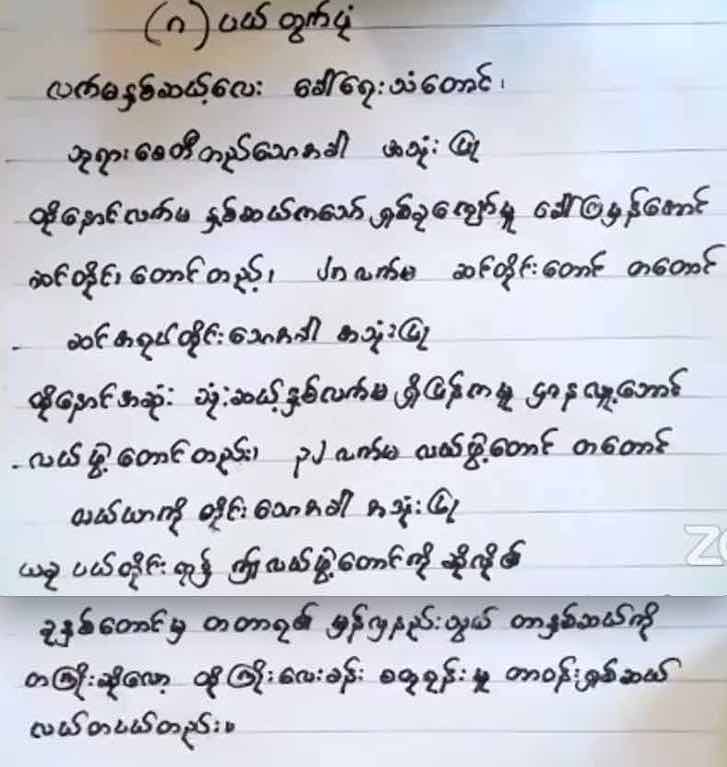 (ဂ) ပယ် တွက်ပုံ
လက်မနှစ်ဆယ့်လေး ခေါ်ရေးသံတောင်၊
ဘုရားစေတီတည်သောအခါ အသုံးပြု
ထို့နောင်လက်မ နှစ်ဆယ်ကသော် ရှစ်ခုကျော်မူ ခေါ်ပြမှန်အောင်
ဆင်တိုင်း တောင်တည့်၊ ၂၈ လက်မ ဆင်တိုင်းတောင် တတောင်
- ဆင်အရပ်တိုင်းသောအခါ အသုံးပြု
ထို့နောင်အဆုံး သုံးဆယ့်နှစ်လက်မ ရှိပြန်ကမူ ဌာနလှူအောင်
- လယ်ဖွဲ့တောင်တည်း၊ ၃၂ လက်မ လယ်ဖွဲ့တောင် တတောင်
လယ်ယာကို တိုင်းသောအခါ အသုံးပြု
ယခု ပယ်တိုင်းရာ၌ ဤလယ်ဖွဲ့တောင်ကို ဆိုလို၏
ခုနှစ်တောင်မှ တတာရ၏ မှန်လှနည်းသွယ် တာနှစ်ဆယ်ကို
တကြိုးဆိုလော့ ထိုကြိုးလေးခန်း စတုရန်းမူ တာဝန်းရှစ်ဆယ်
လယ်တပယ်တည်း။